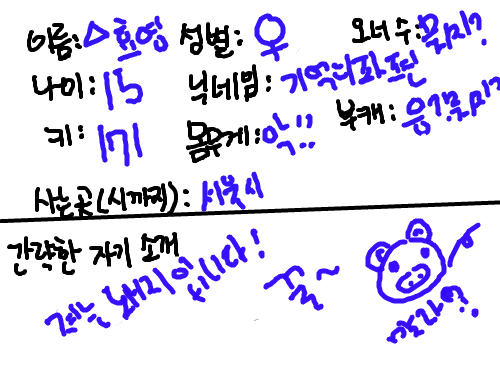 이름: △효영 성별: ♀ 오너 수: 뭐지?
나이: 15 닉네임: 기억니은좌표
키: 171 몸무게: 악!! 부캐: 응?뭘까?
사는곳(시까지): 서울시
간략한 자기 소개
저는 돼지입니다! 꿀~